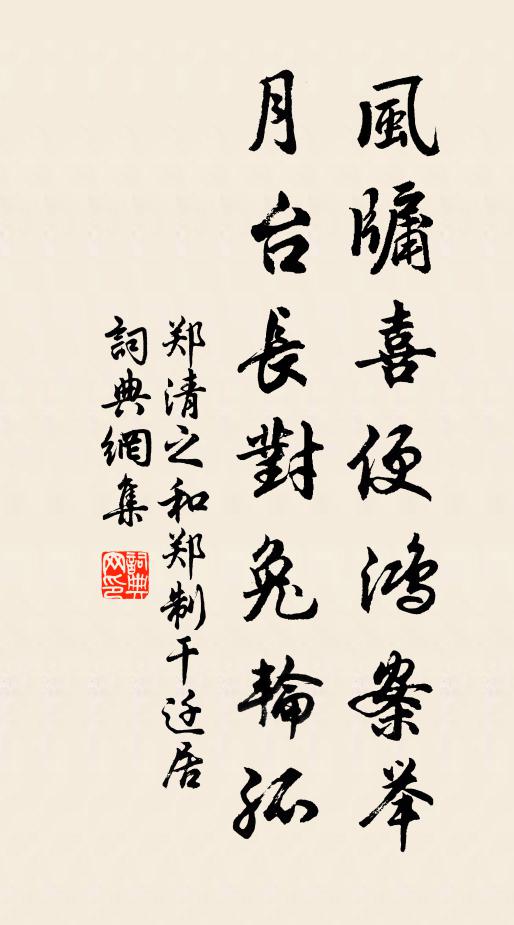 風牖喜便鴻案举
月台長對兔輪孤
郑清之和郑制干迁居
詞典網集
詞典网印